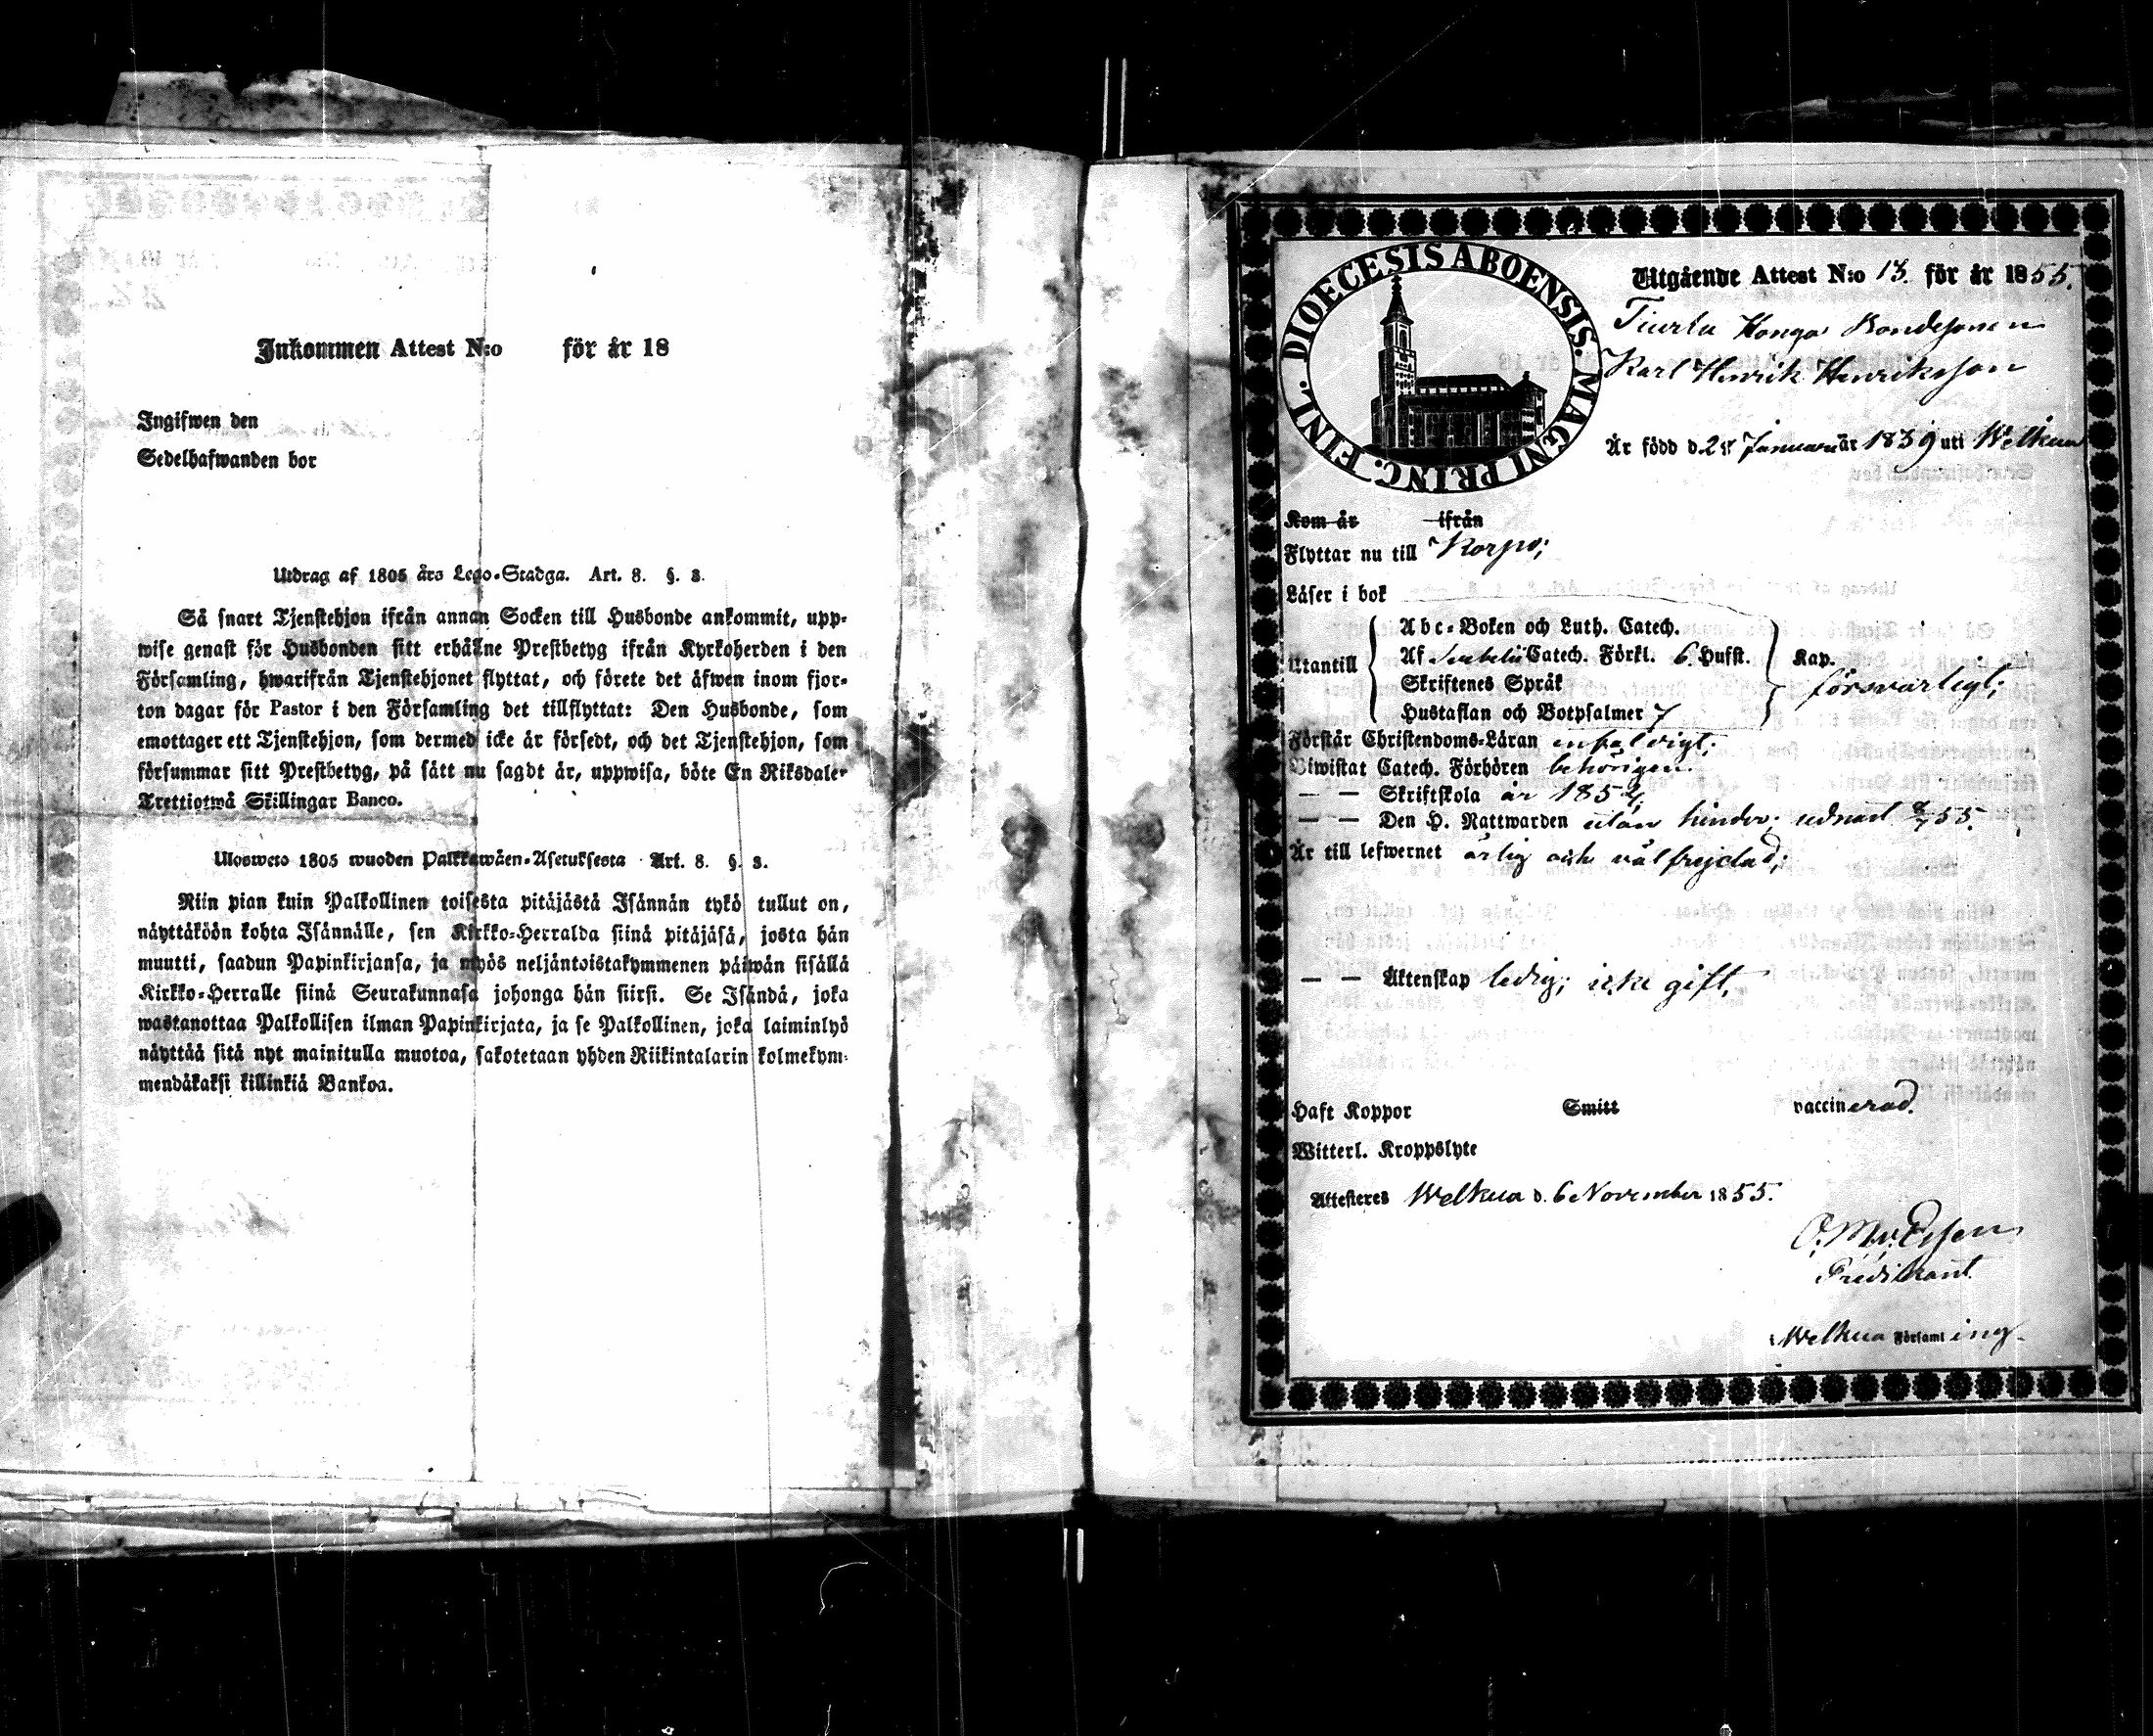 Inkommen Attest N:o för år 18
Ingifwen den
Sedelhafwanden bor
Utdrag af 1805 års Lego-Stadga. Art. 8. §. 3.
Så snart Tjenstehjon ifrån annan Socken till Husbonde ankommit, upp-
wise genast för Husbonden sitt erhållne Prestbetyg ifrån Kyrkoherden i den
Församling, hwarifrån Tjenstehjonet flyttat, och förete det äfwen inom fjor-
ton dagar för Pastor i den Församling det tillflyttat: Den Husbonde, som
emottager ett Tjenstehjon, som dermed icke är försedt, och det Tjenstehjon, som
försummar sitt Prestbetyg, på sätt nu sagdt är, uppwisa, böte En Riksdaler
Trettiotwå Skillingar Banco.
Ulosweto 1805 wuoden Palkkawäen-Asetuksesta Art. 8. §. 3.
Niin pian kuin Palkollinen toisesta pitäjästä Isännän tykö tullut on,
näyttäköön kohta Isännälle, sen Kirkko-Herralda siinä pitäjäsä, josta hän
muutti, saadun Papinkirjansa, ja myös neljäntoistakymmenen päiwän sisällä
Kirkko-Herralle siinä Seurakunnasa johonga hän siirsi. Se Isändä, joka
wastanottaa Palkollisen ilman Papinkirjata, ja se Palkollinen, joka laiminlyö
näyttää sitä nyt mainitulla muotoa, sakotetaan yhden Riikintalarin kolmekym-
mendäkaksi killinkiä Bankoa.
DIOECESIS ABOENSIS. MAGNI PRINC. FINL.
Utgående Attest N:o 13. för år 1855.
Konga Bondesonen
Karl Henrik Henriksson
Är född d. 2 Januari år 1839 uti Welkua
Kom år ifrån
Flyttar nu till Korpo;
Läser i bok
Utantill
Abc-Boken och Luth. Catech.
Af Catech. Förkl. 6. Hufst. Kap.
Skriftenes Språk
försvarligt;
Hustaflan och Botpsalmer 7
Förstår Christendoms-Läran enfaldigt;
Biwistat Catech. Förhören behörigen.
— — Skriftskola år 1854;
— — Den H. Nattwarden utan hinder; 55.
Är till lefwernet ärlig och välfrejdad;
— — Äktenskap ledig; icke gift.
Haft Koppor Smitt vaccinerad.
Witterl. Kroppslyte
Attesteres Welkua d. 6 November 1855.
O. M. v. Essen
Predikant
i Welkua Församling